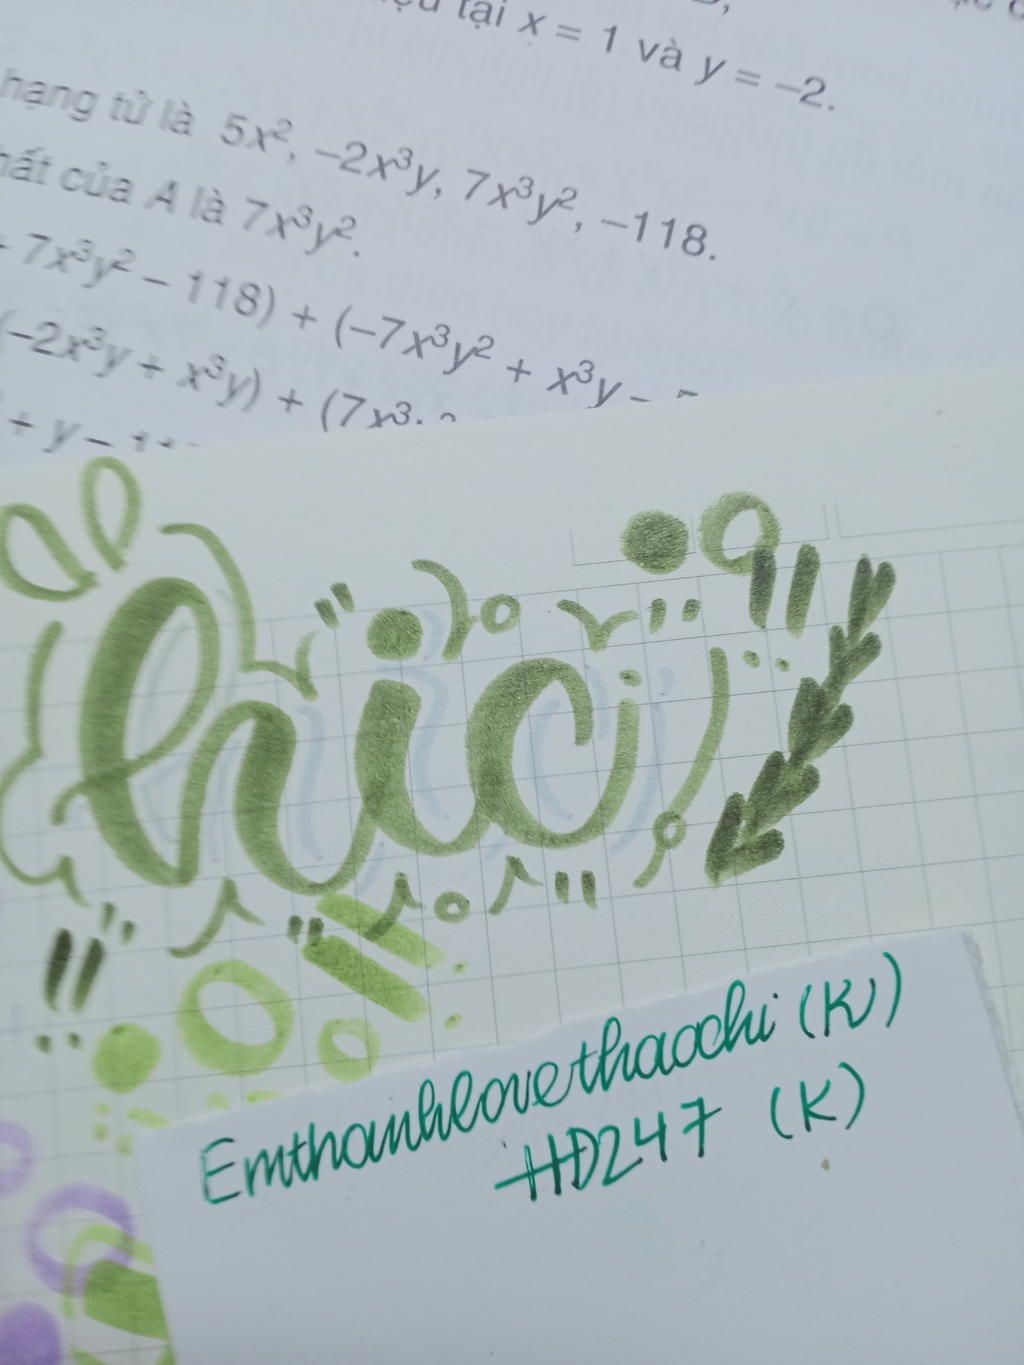 tại x = 1 và y = −2.
hạng tử là 5x², −2x³y, 7x³y², −118.
của A là 7x³y².
7x³y² − 118) + (−7x³y² + x³y −
(−2x³y + x³y) + (7x³
+ y −
hic
Emthanhlovethaochi (K)
HD247 (K)